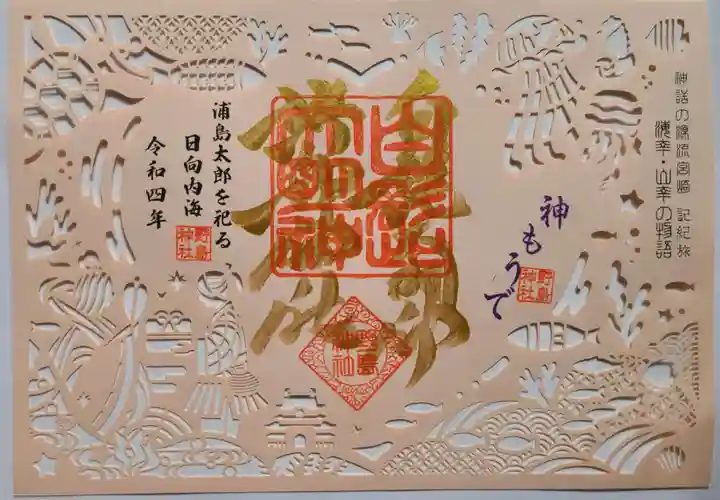 神話の源流宮崎 記紀旅
海幸・山幸の物語
神もうで
野島神社
白髭大明神
浦島太郎を祀る
日向内海
野島神社
令和四年